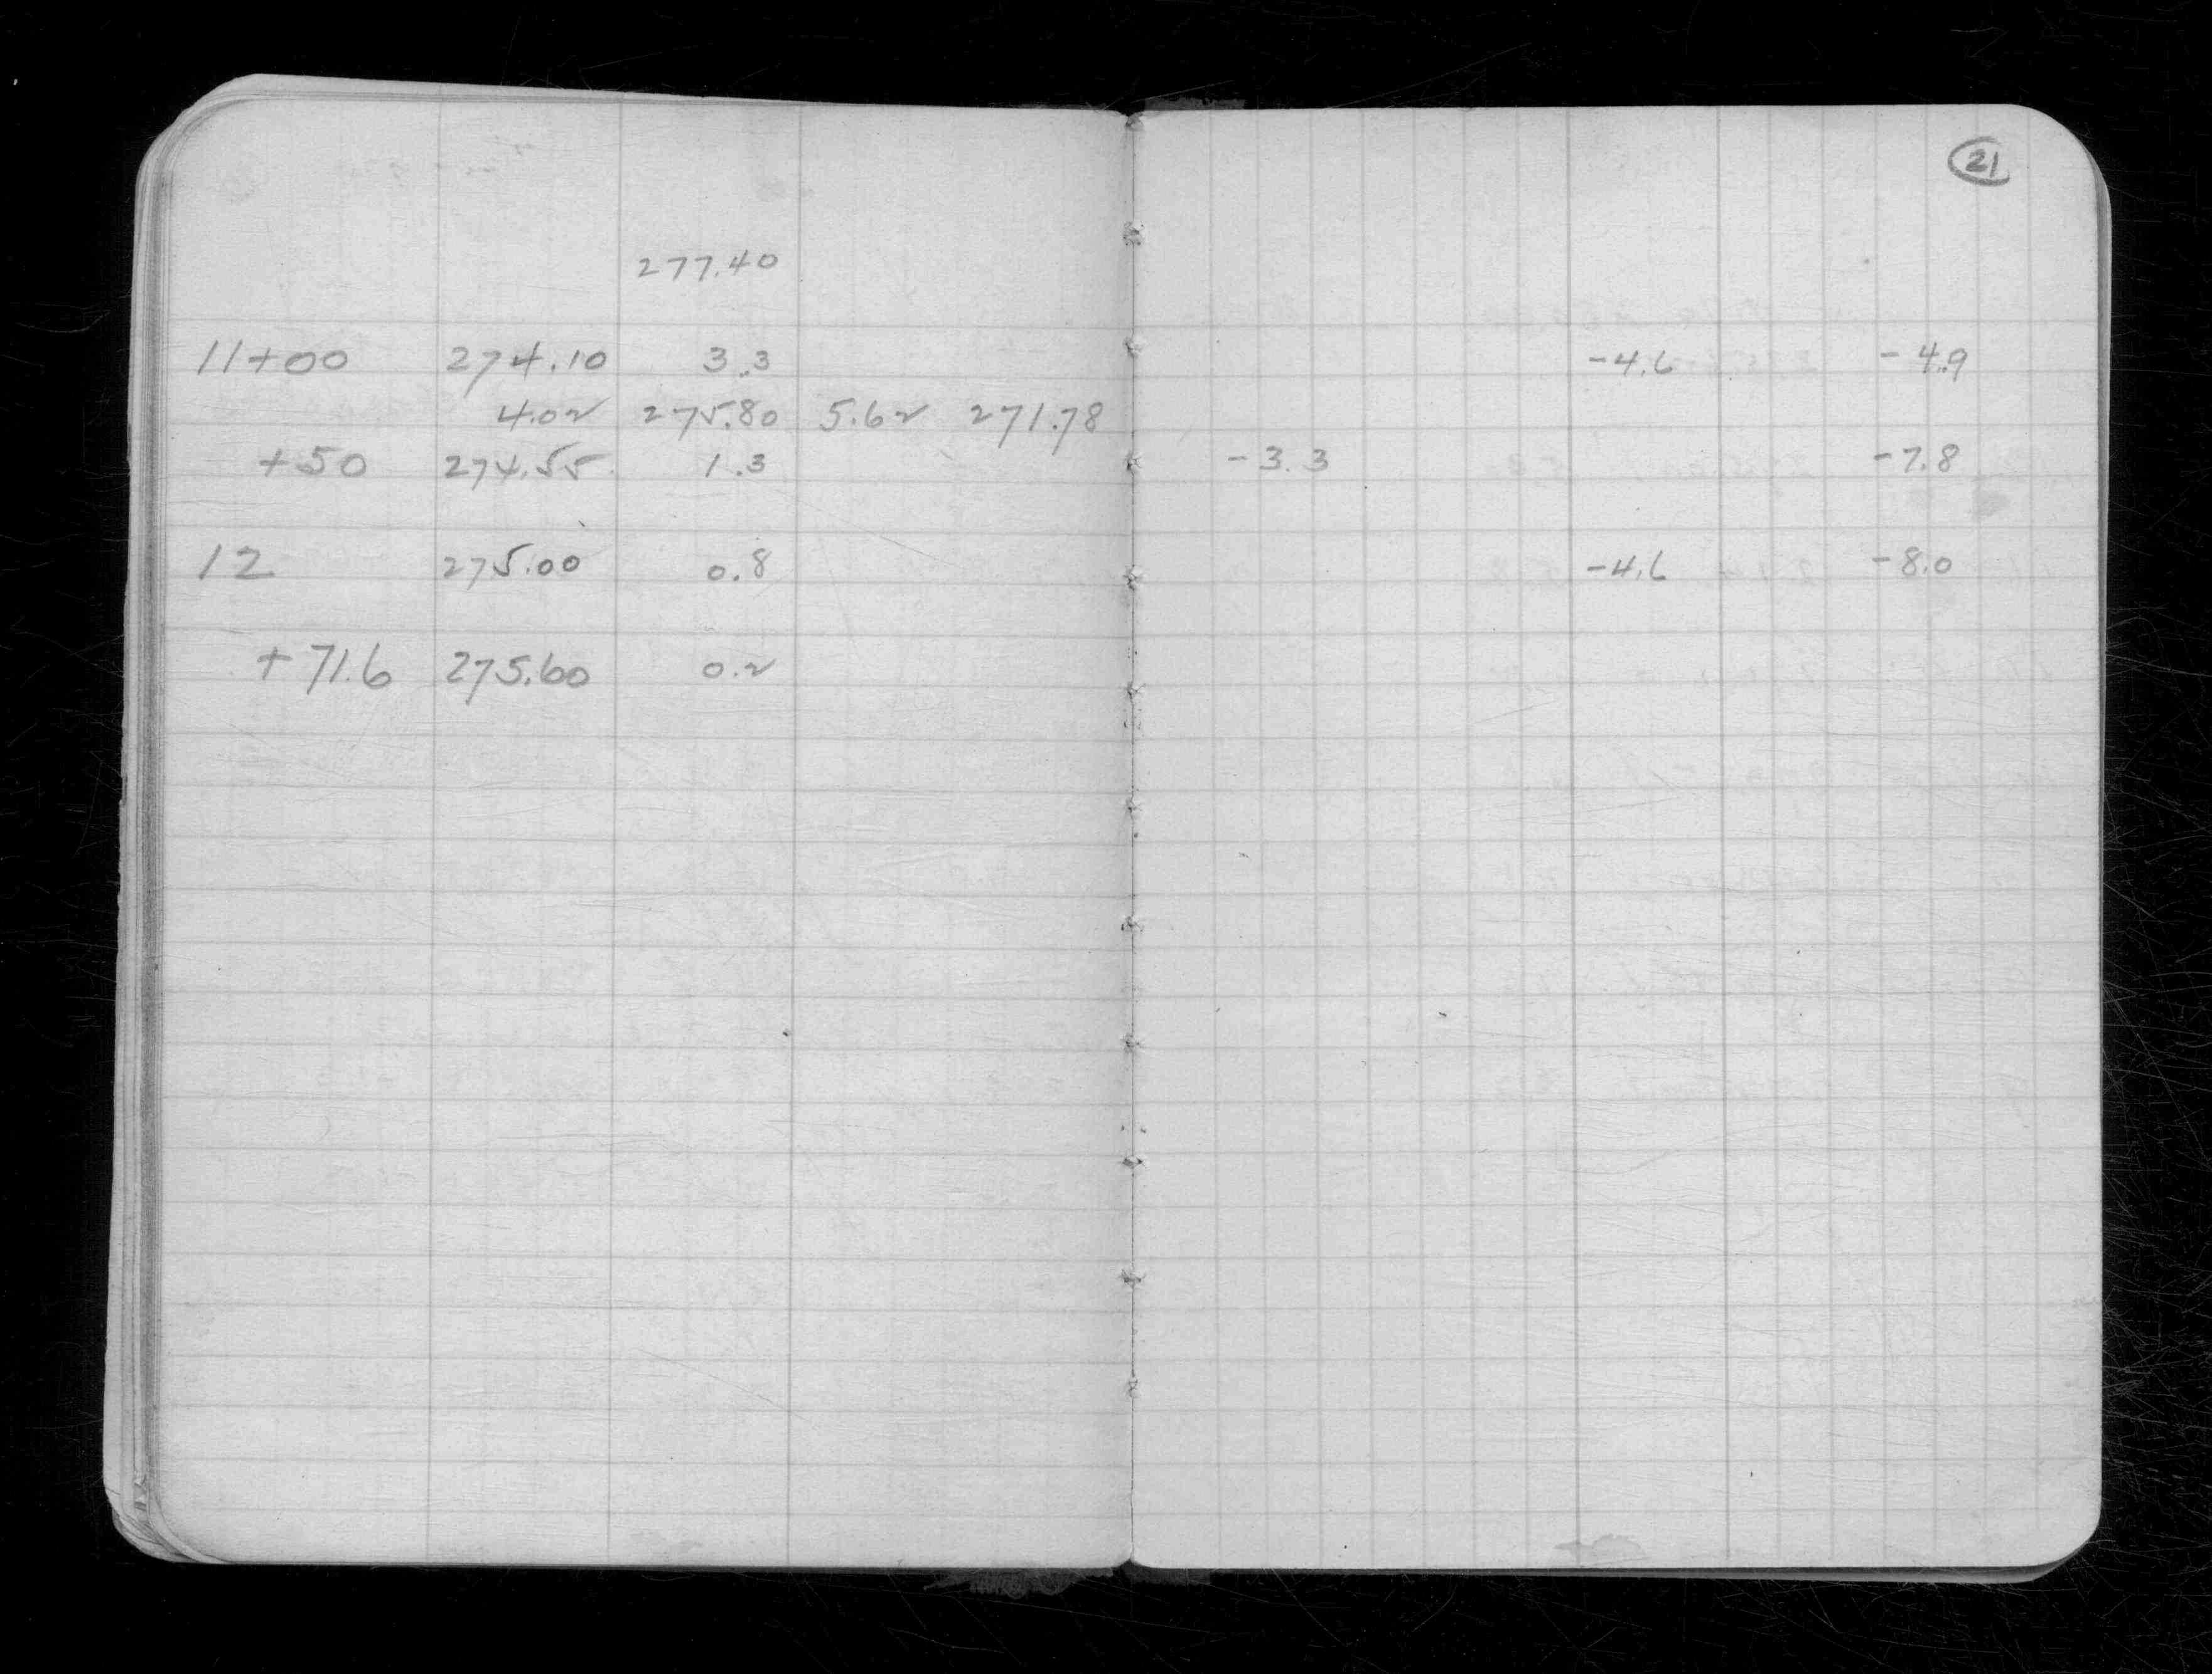 21
277.40
11+00 274.10 3.3 -4.6 -4.9
4.02 275.80 5.62 271.78
+50 274.55 1.3 -3.3 -7.8
12 275.00 0.8 -4.6 -8.0
+71.6 275.60 0.2